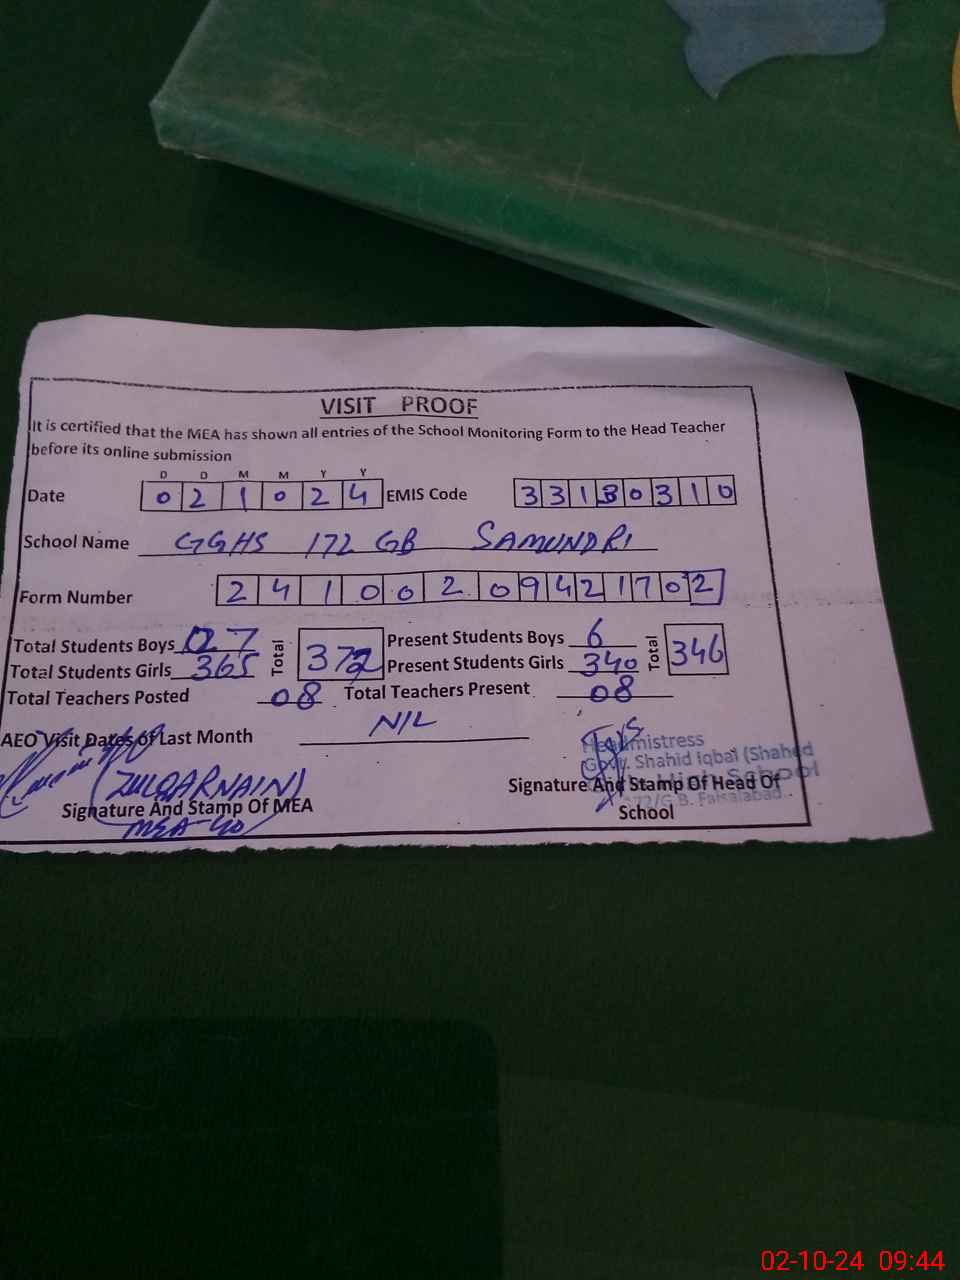 VISIT PROOF
It is certified that the MEA has shown all entries of the School Monitoring Form to the Head Teacher
before its online submission
D D M M Y Y
Date 0 2 1 0 2 4 EMIS Code 3 3 1 3 0 3 1 0
School Name GGHS 172 GB SAMUNDRI
Form Number 2 4 1 0 0 2 0 9 4 2 1 7 0 2
Total Students Boys 07 Total 372 Present Students Boys 6 Total 346
Total Students Girls 365 Present Students Girls 340
Total Teachers Posted 08 Total Teachers Present 08
AEO Visit Dates of Last Month NIL
Headmistress
Govt. Shahid Iqbal (Shahed
High School
172/G.B. Faisalabad
(ZULQARNAIN)
Signature And Stamp Of MEA
MEA-40
Signature And Stamp Of Head Of
School
02-10-24 09:44